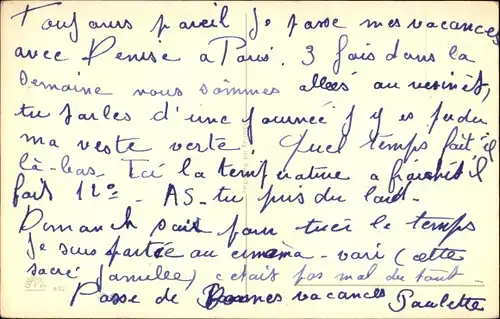 Toujours pareil je passe mes vacances
avec Denise à Paris. 3 fois dans la
semaine nous sommes allées au vésinet,
tu parles d'une journée j'y es perdu
ma veste verte. Quel temps fait il
là-bas. Ici la température a il
fait 12° - AS-tu pris du lard.
Dimanch soir pour tuer le temps
je suis partie au cinéma - voir (cette
sacré famille) c'etait pas mal du tout -
Passe de Bonnes vacances Paulette